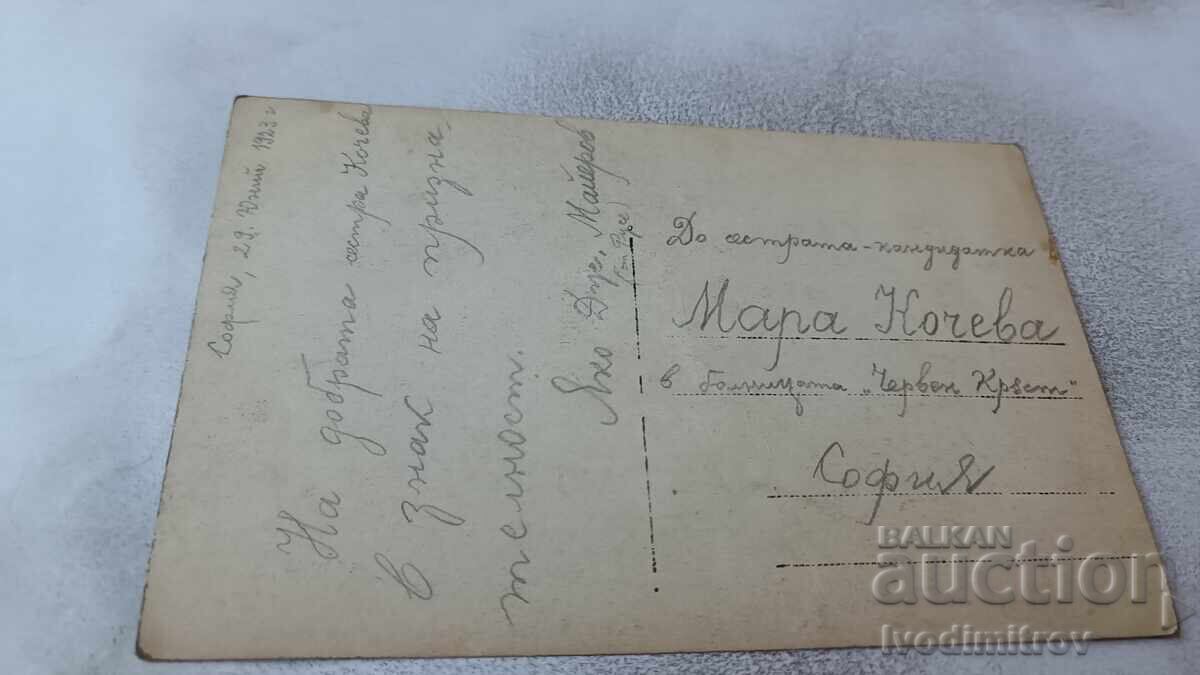 София, 29. Юний 1923 г
На добрата сестра Кочева
В знак на призна
телност.
Яко Майеров
(от Русе)
До сестрата-кандидатка
Мара Кочева
в болницата „Червен Кръст"
София
BALKAN
auction
Ivodimitrov